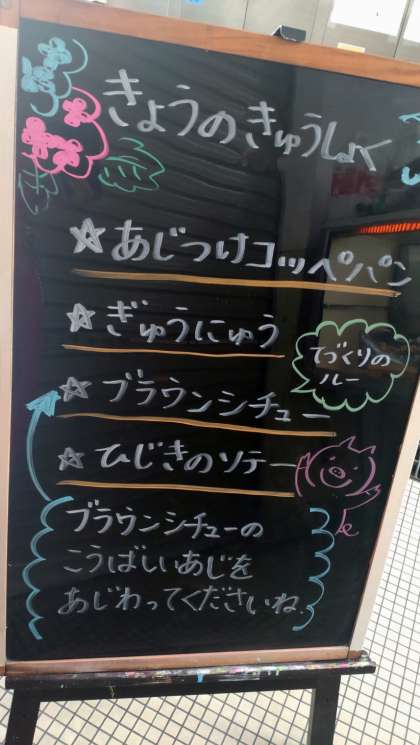 きょうのきゅうしょく
☆あじつけコッペパン
☆ぎゅうにゅう
てづくりの
ルー
☆ブラウンシチュー
☆ひじきのソテー
ブラウンシチューの
こうばしいあじを
あじわってくださいね.